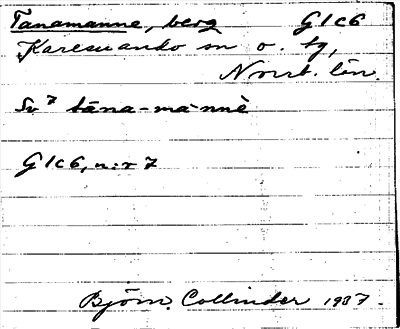 Tanamanne, berg G1c6
Karesuando sn o. tg,
Norrb. län.
Sv 7 tāna-mannè
G1c6, n:r 7
Björn Collinder 1937.